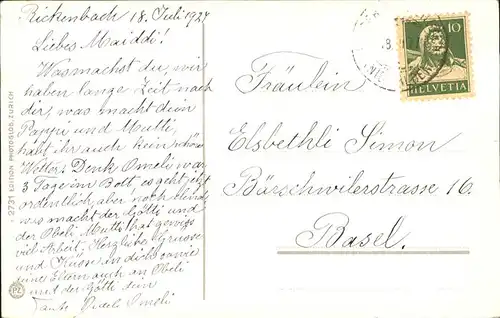 Rickenbach 18. Juli 1927
Liebes Maiddi!
Was machst du, wir
haben lange Zeit nach
dir, was macht dein
Pappi und Mutti,
habt ihr auch kein schön
Wetter. Denk Omeli war
3 Tage im Bett, es geht jetzt
ordentlich, aber noch
was macht der Götti und
der Obeli Mutti hat gewiss
viel Arbeit. Herzliche Grüsse
und Küsse an dich sowie
deine Eltern auch an Obeli
und der Götti dein
Tante Omeli
2731 EDITION PHOTOGLOB, ZÜRICH
PZ
10
HELVETIA
Fräulein
Elsbethli Simon
Bärschwilerstrasse 16.
Basel.